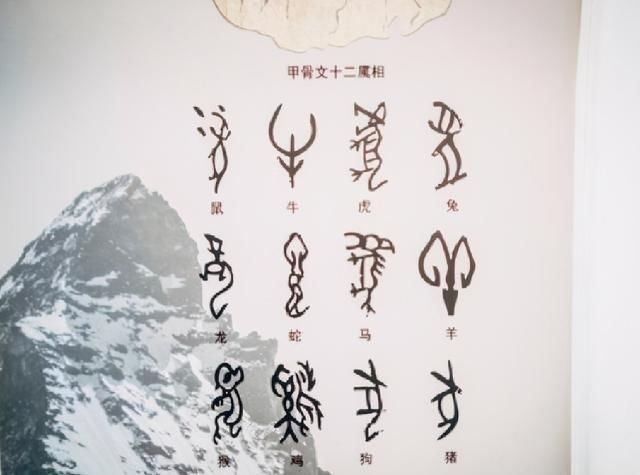 甲骨文十二属相
鼠 牛 虎 兔
龙 蛇 马 羊
猴 鸡 狗 猪